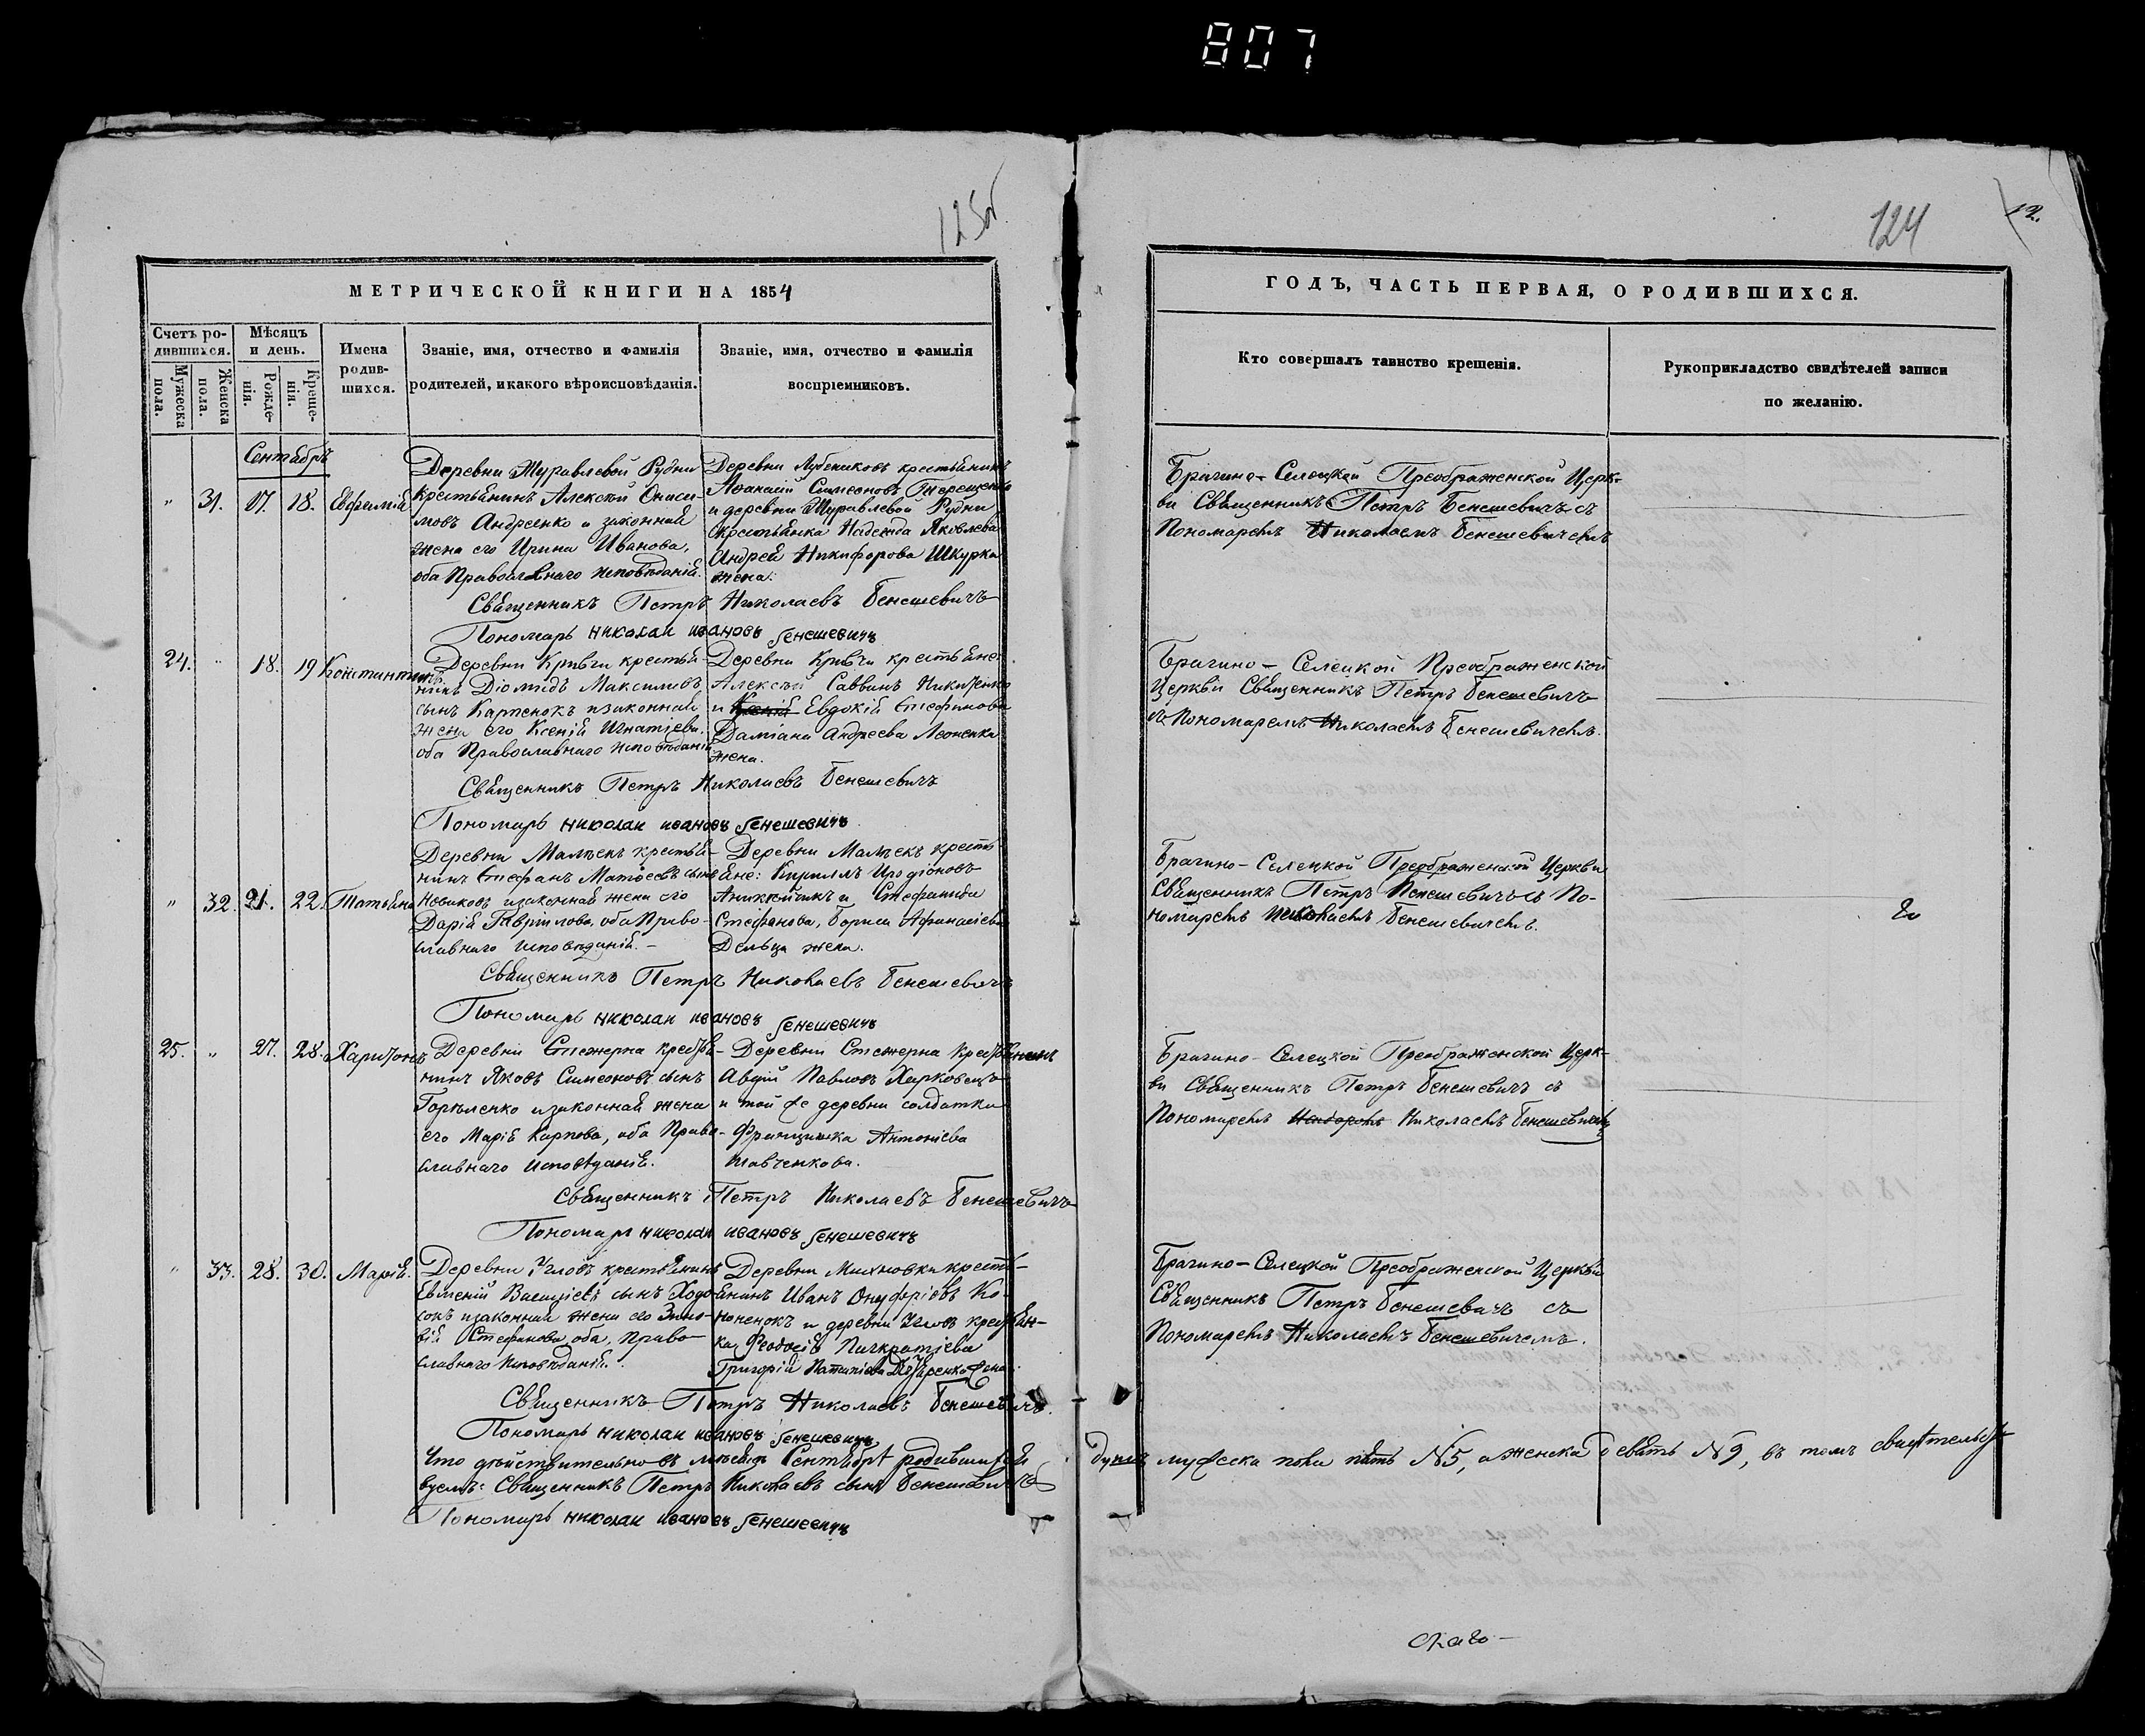 807
123об
124
12.
МЕТРИЧЕСКОЙ КНИГИ НА 1854
ГОДЪ, ЧАСТЬ ПЕРВАЯ, О РОДИВШИХСЯ.
Счетъ ро-
дившихся.
Мужеска пола.
Женска пола.
Мѣсяцъ
и день.
Рожде-
нія.
Креще-
нія.
Имена
родив-
шихся.
Званіе, имя, отчество и фамилія
родителей, и какого вѣроисповѣданія.
Званіе, имя, отчество и фамилія
воспріемниковъ.
Кто совершалъ таинство крещенія.
Рукоприкладство свидѣтелей записи
по желанію.
Сентябрь
" 31. 17. 18. Евфимія
Деревни Журавлевой Рудни
крестьянинъ Алексѣй Ониси-
мовъ Андреенко и законная
жена его Ирина Иванова,
оба Православнаго исповѣданія.
Деревни Лубениковъ крестьянинъ
Афанасій Симеоновъ Терещенко
и деревни Журавлевой Рудни
крестьянка Надежда Яковлева
Андрея Никифорова Шкурка
жена.
Брагино-Селецкой Преображенской Церк-
ви Священникъ Петръ Бенешевичъ съ
Пономаремъ Николаемъ Бенешевичемъ
Священникъ Петръ Николаевъ Бенешевичъ
Пономарь николаи ивановъ бенешевичъ
24. " 18. 19 Константинъ
Деревни Кривчи крестья-
нинъ Діомидъ Максимовъ
сынъ Карпенокъ и законная
жена его Ксенія Игнатіева,
оба Православнаго исповѣданія
Деревни Кривчи крестьяне:
Алексѣй Саввинъ Никитенко
и Евдокія Стефанова
Даміана Андреева Леоненка
жена.
Брагино-Селецкой Преображенской
Церкви Священникъ Петръ Бенешевичъ
съ Пономаремъ Николаемъ Бенешевичемъ.
Священникъ Петръ Николаевъ Бенешевичъ
Пономарь николаи ивановъ бенешевичъ
" 32. 21. 22. Татьяна
Деревни Малѣекъ крестья-
нинъ Стефанъ Матѳеевъ сынъ
Новиковъ и законная жена его
Дарія Гаврилова, оба Право-
славнаго исповѣданія.-
Деревни Малѣекъ кресть
яне: Кириллъ Иродіоновъ
и Стефанида
Стефанова, Бориса Афанасіева
Дельца жена.
Брагино-Селецкой Преображенской Церкви
Священникъ Петръ Бенешевичъ съ По-
номаремъ Николаемъ Бенешевичемъ.
го
Священникъ Петръ Николаевъ Бенешевичъ
Пономарь николаи ивановъ бенешевичъ
25. " 27. 28. Харитонъ
Деревни Стежерна крестья-
нинъ Яковъ Симеоновъ сынъ
Горѣленко и законная жена
его Марія Карпова, оба Право-
славнаго исповѣданія.
Деревни Стежерна крестьянинъ
Авдій Павловъ Харковецъ
и той же деревни солдатка
Францишка Антоніева
Шавченкова.
Брагино-Селецкой Преображенской Церк-
ви Священникъ Петръ Бенешевичъ съ
Пономаремъ Николаемъ Бенешевичемъ
Священникъ Петръ Николаевъ Бенешевичъ
Пономарь николаи ивановъ бенешевичъ
" 33. 28. 30. Марія.
Деревни Угловъ крестьянинъ
Евменій Василіевъ сынъ Ходо-
сокъ и законная жена его Зино-
вія Стефанова, оба Право-
славнаго исповѣданія.
Деревни Михновки кресть-
янинъ Иванъ Онуфріевъ Ко-
ноненокъ и деревни Угловъ крестьян-
ка Феодосія Панкратіева
Григорія жена.
Брагино-Селецкой Преображенской Церкви
Священникъ Петръ Бенешевичъ съ
Пономаремъ Николаемъ Бенешевичемъ.
Священникъ Петръ Николаевъ Бенешевичъ.
Пономарь николаи ивановъ бенешевичъ
Что дѣйствительно въ мѣсяцѣ Сентябрѣ родившихся душъ мужеска пола пять №5, а женска девять №9, въ томъ свидѣтельст-
вуемъ: Священникъ Петръ Николаевъ сынъ Бенешевичъ
Пономарь николаи ивановъ бенешевичъ
скаго-